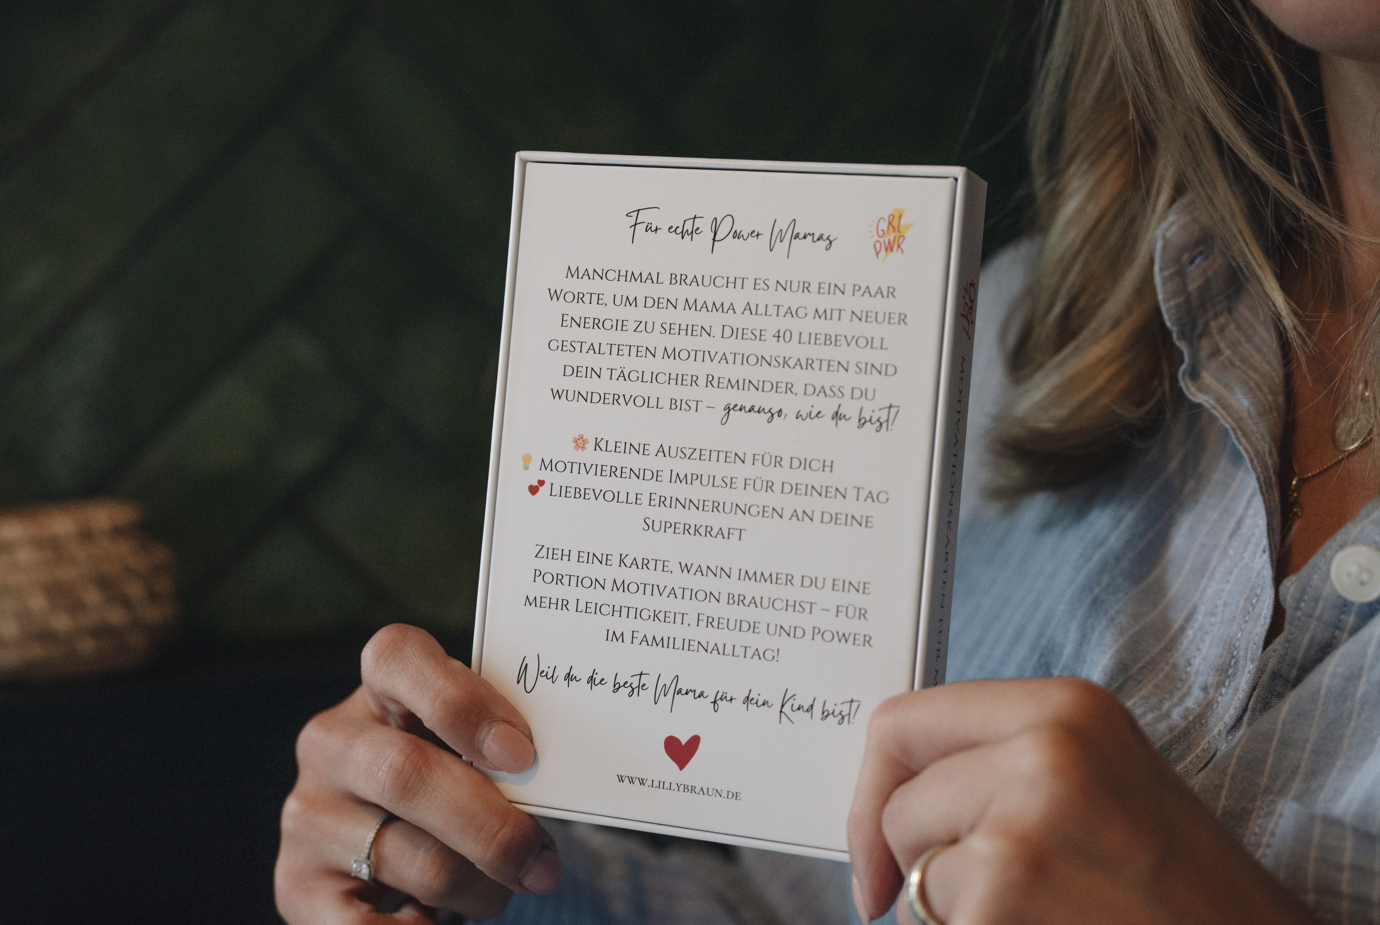 Für echte Power Mamas
GRL
PWR
Manchmal braucht es nur ein paar
Worte, um den Mama Alltag mit neuer
Energie zu sehen. Diese 40 liebevoll
gestalteten Motivationskarten sind
dein täglicher Reminder, dass du
wundervoll bist – genauso, wie du bist!
🌸 Kleine Auszeiten für dich
💡 Motivierende Impulse für deinen Tag
💕 Liebevolle Erinnerungen an deine
Superkraft
Zieh eine Karte, wann immer du eine
Portion Motivation brauchst – für
mehr Leichtigkeit, Freude und Power
im Familienalltag!
Weil du die beste Mama für dein Kind bist!
www.lillybraun.de
Motivationskarten für